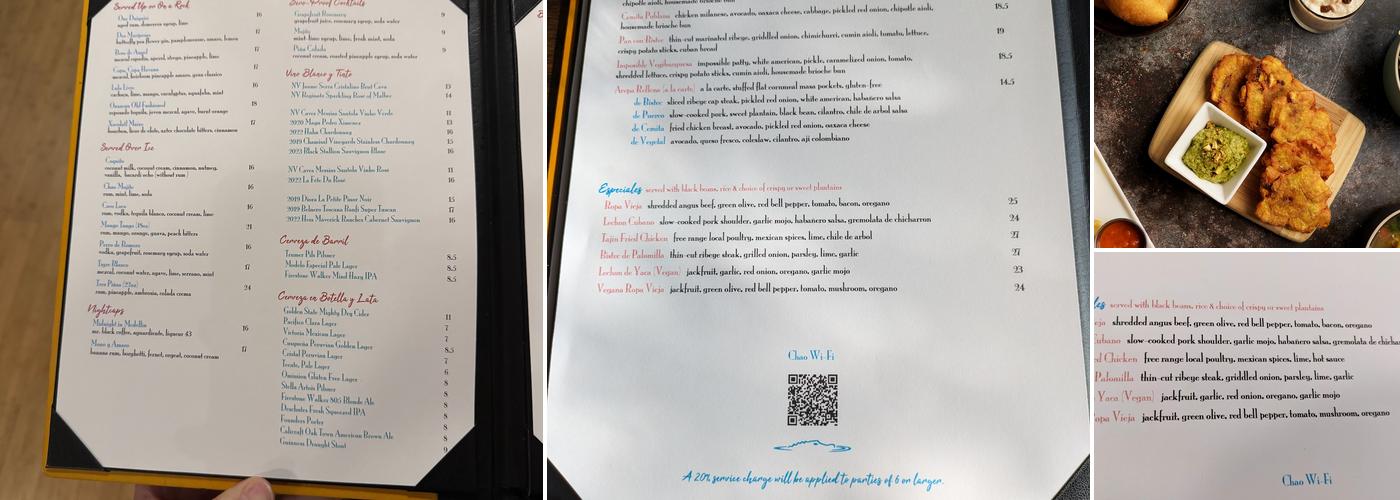 Served Up or On a Rock
Oro Daiquiri 16
aged rum, demerara syrup, lime
17
Rosa de Angel 17
Capa, Capa Havana 17
mezcal, heirloom pineapple amaro, gran classico
Lulo Livin 16
cachaca, lime, mango, eucalyptus, aquafaba, mint
Oaxacan Old Fashioned 18
reposado tequila, joven mezcal, agave, burnt orange
17
bourbon, licor de elote, aztec chocolate bitters, cinnamon
Served Over Ice
Coquito 16
coconut milk, coconut cream, cinnamon, nutmeg,
vanilla, bacardi ocho (without rum)
Chao Mojito 16
rum, mint, lime, soda
Coco Loco 16
rum, vodka, tequila blanco, coconut cream, lime
Mango Tango (18oz) 21
rum, mango, orange, guava, peach bitters
Perro de Romero 16
vodka, grapefruit, rosemary syrup, soda water
Tigre Blanco 17
mezcal, coconut water, agave, lime, serrano, mint
Tres Piñas (27oz) 24
rum, pineapple, ambrosia, colada crema
Nightcaps
Midnight in Medellin 16
mr. black coffee, aguardiente, liqueur 43
Mono y Amaro 17
banana rum, borghetti, fernet, orgeat, coconut cream
Zero-Proof Cocktails
Grapefruit Rosemary 9
grapefruit juice, rosemary syrup, soda water
Mojito 9
mint-lime syrup, lime, fresh mint, soda
Piña Colada 9
coconut cream, roasted pineapple syrup, soda water
Vino Blanco y Tinto
NV Jaume Serra Cristalino Brut Cava 13
NV Reginato Sparkling Rose of Malbec 14
NV Caves Messias Santola Vinho Verde 11
2020 Mayu Pedro Ximenez 13
2022 Hahn Chardonnay 16
2019 Chamisal Vineyards Stainless Chardonnay 15
2023 Black Stallion Sauvignon Blanc 16
NV Caves Messias Santola Vinho Rose 11
2022 La Fete Du Rose 16
2019 Diora La Petite Pinot Noir 15
2019 Belnero Toscana Banfi Super Tuscan 17
2022 Hess Maverick Ranches Cabernet Sauvignon 16
Cerveza de Barril
Trumer Pils Pilsner 8.5
Modelo Especial Pale Lager 8.5
Firestone Walker Mind Hazy IPA 8.5
Cerveza en Botella y Lata
Golden State Mighty Dry Cider 11
Pacifico Clara Lager 7
Victoria Mexican Lager 7
Cusqueña Peruvian Golden Lager 8.5
Cristal Peruvian Lager 7
Tecate, Pale Lager 6
Omission Gluten Free Lager 8
Stella Artois Pilsner 8
Firestone Walker 805 Blonde Ale 8
Deschutes Fresh Squeezed IPA 8
Founders Porter 8
Calicraft Oak Town American Brown Ale 8
Guinness Draught Stout 9
chipotle aioli, homemade brioche bun
Cemita Poblana chicken milanese, avocado, oaxaca cheese, cabbage, pickled red onion, chipotle aioli, 18.5
homemade brioche bun
Pan con Bistec thin-cut marinated ribeye, griddled onion, chimichurri, cumin aioli, tomato, lettuce, 19
crispy potato sticks, cuban bread
Impossible Vegiburguesa impossible patty, white american, pickle, caramelized onion, tomato, 18.5
shredded lettuce, crispy potato sticks, cumin aioli, homemade brioche bun
Arepa Rellena (a la carte) a la carte, stuffed flat cornmeal masa pockets, gluten-free 14.5
de Bistec sliced ribeye cap steak, pickled red onion, white american, habanero salsa
de Puerco slow-cooked pork, sweet plantain, black bean, cilantro, chile de arbol salsa
de Cemita fried chicken breast, avocado, pickled red onion, oaxaca cheese
de Vegetal avocado, queso fresco, coleslaw, cilantro, aji colombiano
Especiales served with black beans, rice & choice of crispy or sweet plantains
Ropa Vieja shredded angus beef, green olive, red bell pepper, tomato, bacon, oregano 25
Lechon Cubano slow-cooked pork shoulder, garlic mojo, habanero salsa, gremolata de chicharron 24
Tajin Fried Chicken free range local poultry, mexican spices, lime, chile de arbol 27
Bistec de Palomilla thin-cut ribeye steak, grilled onion, parsley, lime, garlic 27
Lechon de Yaca (Vegan) jackfruit, garlic, red onion, oregano, garlic mojo 23
Vegana Ropa Vieja jackfruit, green olive, red bell pepper, tomato, mushroom, oregano 24
Chao Wi-Fi
A 20% service charge will be applied to parties of 6 or larger.
les served with black beans, rice & choice of crispy or sweet plantains
ieja shredded angus beef, green olive, red bell pepper, tomato, bacon, oregano
Cubano slow-cooked pork shoulder, garlic mojo, habanero salsa, gremolata de chichar
ed Chicken free range local poultry, mexican spices, lime, hot sauce
Palomilla thin-cut ribeye steak, griddled onion, parsley, lime, garlic
Yaca (Vegan) jackfruit, garlic, red onion, oregano, garlic mojo
opa Vieja jackfruit, green olive, red bell pepper, tomato, mushroom, oregano
Chao Wi-Fi